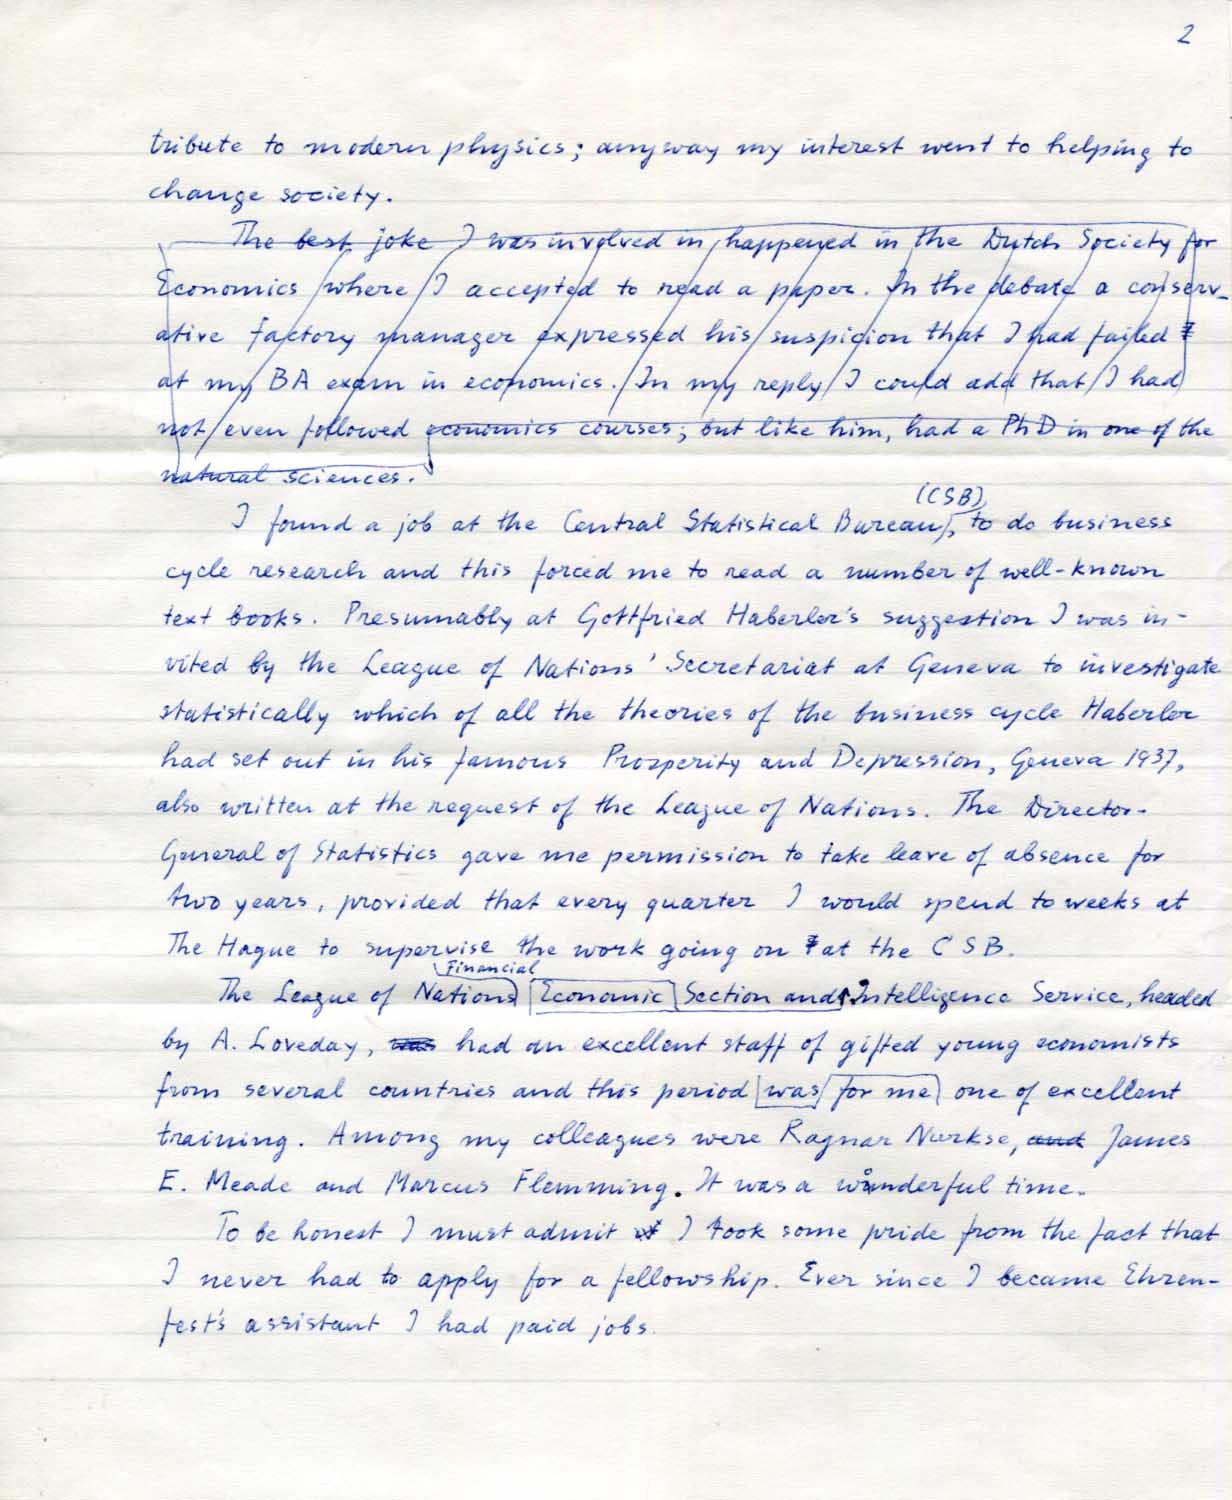 2
tribute to modern physics; anyway my interest went to helping to
change society.
The best joke I was involved in, happened in the Dutch Society for
Economics where I accepted to read a paper. In the debate a conserv-
ative factory manager expressed his suspicion that I had failed
at my BA exam in economics. In my reply I could add that I had
not even followed economics courses; but like him, had a PhD in one of the
natural sciences.
(CSB)
I found a job at the Central Statistical Bureau, to do business
cycle research and this forced me to read a number of well-known
text books. Presumably at Gottfried Haberler's suggestion I was in-
vited by the League of Nations' Secretariat at Geneva to investigate
statistically which of all the theories of the business cycle Haberler
had set out in his famous Prosperity and Depression, Geneva 1937,
also written at the request of the League of Nations. The Director-
General of Statistics gave me permission to take leave of absence for
two years, provided that every quarter I would spend to weeks at
The Hague to supervise the work going on at the CSB.
Financial
The League of Nations Economic Section and Intelligence Service, headed
by A. Loveday, was had an excellent staff of gifted young economists
from several countries and this period was for me one of excellent
training. Among my colleagues were Ragnar Nurkse, and James
E. Meade and Marcus Flemming. It was a wonderful time.
To be honest I must admit I took some pride from the fact that
I never had to apply for a fellowship. Ever since I became Ehren-
fest's assistant I had paid jobs.